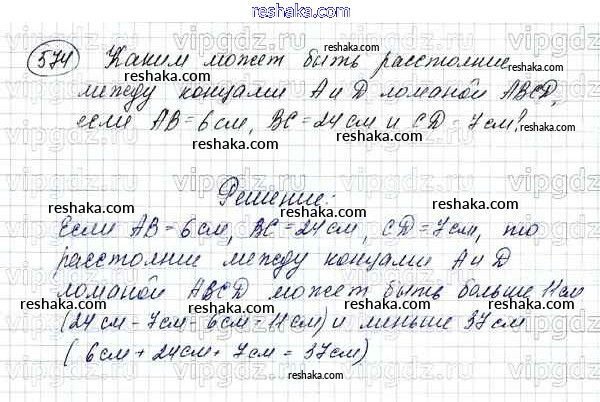 574 Каким может быть расстояние
между концами A и D ломаной ABCD,
если AB = 6 см, BC = 24 см и CD = 7 см?
Решение:
Если AB = 6 см, BC = 24 см, CD = 7 см, то
расстояние между концами A и D
ломаной ABCD может быть больше 11 см
(24 см - 7 см - 6 см = 11 см) и меньше 37 см
(6 см + 24 см + 7 см = 37 см)